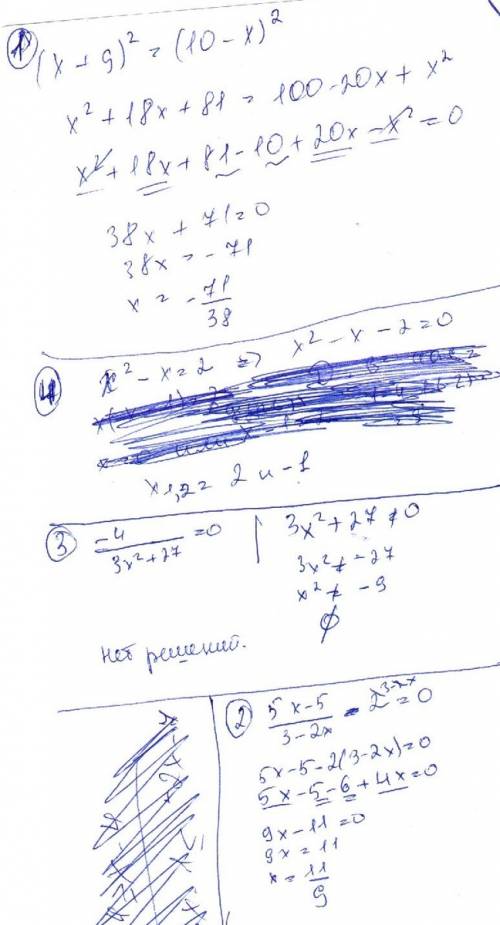 1 (x + 9)² = (10 - x)²
x² + 18x + 81 = 100 - 20x + x²
x² + 18x + 81 - 10 + 20x - x² = 0
38x + 71 = 0
38x = -71
x = -71/38
4 x² - x = 2 => x² - x - 2 = 0
x1,2 = 2 и -1
3 -4/(3x² + 27) = 0 | 3x² + 27 ≠ 0
3x² ≠ -27
x² ≠ -9
∅
нет решений.
2 (5x - 5)/(3 - 2x) - 2^(3-2x) = 0
5x - 5 - 2(3 - 2x) = 0
5x - 5 - 6 + 4x = 0
9x - 11 = 0
9x = 11
x = 11/9